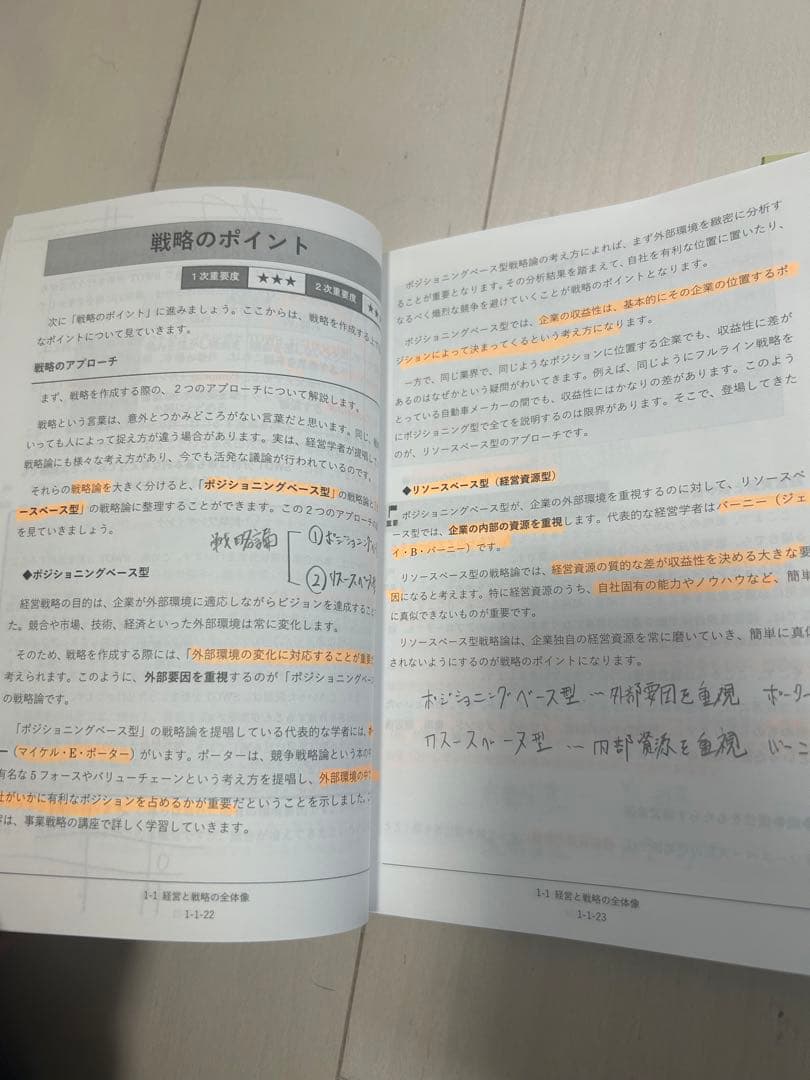 戦略のポイント
1次重要度 ★★★ 2次重要度 ★
次に「戦略のポイント」に進みましょう。ここからは、戦略を作成する上で
なポイントについて見ていきます。
戦略のアプローチ
まず、戦略を作成する際の、2つのアプローチについて解説します。
戦略という言葉は、意外とつかみどころがない言葉だと思います。同じ、
いっても人によって捉え方が違う場合があります。実は、経営学者が提唱し
戦略論にも様々な考え方があり、今でも活発な議論が行われているのです。
それらの戦略論を大きく分けると、「ポジショニングベース型」の戦略論と
ースベース型」の戦略論に整理することができます。この2つのアプローチの
を見ていきましょう。
戦略論 ①ポジショニング
②リソースベース
◆ポジショニングベース型
経営戦略の目的は、企業が外部環境に適応しながらビジョンを達成すること
た。競合や市場、技術、経済といった外部環境は常に変化します。
そのため、戦略を作成する際には、「外部環境の変化に対応することが重要
考えられます。このように、外部要因を重視するのが「ポジショニングベース
の戦略論です。
「ポジショニングベース型」の戦略論を提唱している代表的な学者には、
ー(マイケル・E・ポーター)がいます。ポーターは、競争戦略論という本の中
有名な5フォースやバリューチェーンという考え方を提唱し、外部環境の中で
社がいかに有利なポジションを占めるかが重要だということを示しました。
は、事業戦略の講座で詳しく学習していきます。
1-1 経営と戦略の全体像
1-1-22
ポジショニングベース型戦略論の考え方によれば、まず外部環境を緻密に分析す
ることが重要となります。その分析結果を踏まえて、自社を有利な位置に置いたり、
なるべく熾烈な競争を避けていくことが戦略のポイントとなります。
ポジショニングベース型では、企業の収益性は、基本的にその企業の位置するポ
ジションによって決まってくるという考え方になります。
一方で、同じ業界で、同じようなポジションに位置する企業でも、収益性に差が
あるのはなぜかという疑問がわいてきます。例えば、同じようにフルライン戦略を
とっている自動車メーカーの間でも、収益性にはかなりの差があります。このよう
にポジショニング型で全てを説明するのは限界があります。そこで、登場してきた
のが、リソースベース型のアプローチです。
◆リソースベース型(経営資源型)
ポジショニングベース型が、企業の外部環境を重視するのに対して、リソースベ
ース型では、企業の内部の資源を重視します。代表的な経営学者はバーニー(ジェ
イ・B・バーニー)です。
リソースベース型の戦略論では、経営資源の質的な差が収益性を決める大きな要
因になると考えます。特に経営資源のうち、自社固有の能力やノウハウなど、簡単
に真似できないものが重要です。
リソースベース型戦略論は、企業独自の経営資源を常に磨いていき、簡単に真似
されないようにするのが戦略のポイントになります。
ポジショニングベース型 … 外部要因を重視 ポーター
リソースベース型 … 内部資源を重視 バーニ
1-1 経営と戦略の全体像
1-1-23